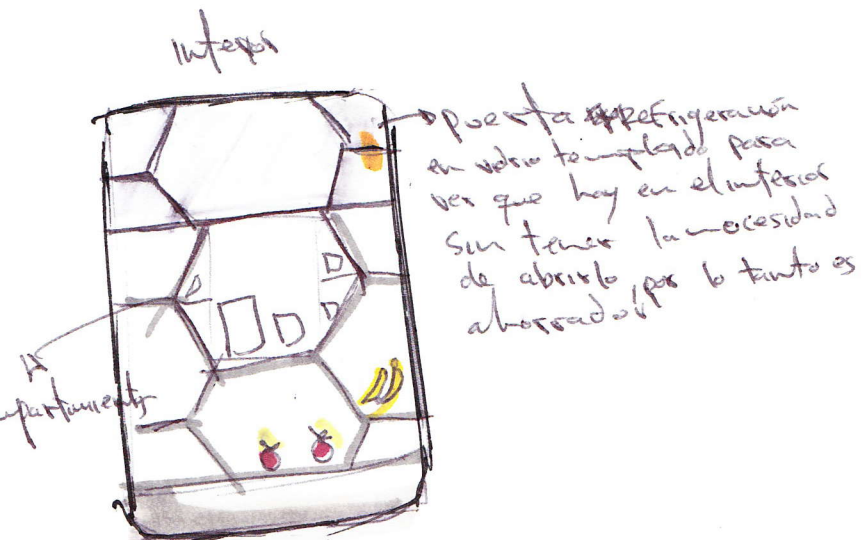 Interior
puerta Refrigeración
en vidrio templado para
ver que hay en el interior
sin tener la necesidad
de abrirlo, por lo tanto es
ahorrador